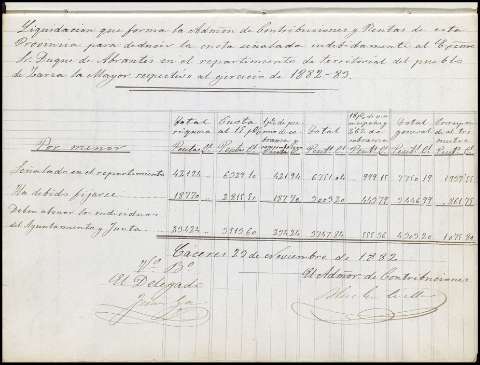 Liquidacion que forma la Admon de Contribuciones y Rentas de esta
Provincia para deducir la cuota señalada indebidamente al Excmo
Sr. Duque de Abrantes en el repartimiento de territorial del pueblo
de Zarza la Mayor respectivo al ejercicio de 1882-83.
Total Cuota Total Total
riqueza al 15 general
Por menor Pesetas Ct
Señalado en el repartimiento 42194 6329.10 42194 6751.04 7750.19
Ha debido fijarse 18770 2815.50 18770 3003.20
Deben abonar los individuos
del Ayuntamiento y Junta 23424 3513.60 3747.84 555.36 4303.20 1075.80
Cáceres 23 de Noviembre de 1882
Vº Bº
El Delegado
El Admor. de Contribuciones